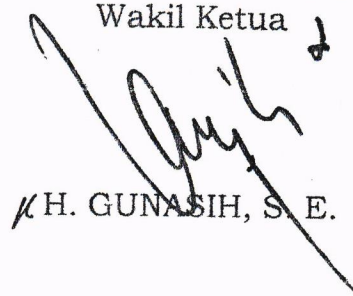 Wakil Ketua
H. GUNASIH, S. E.